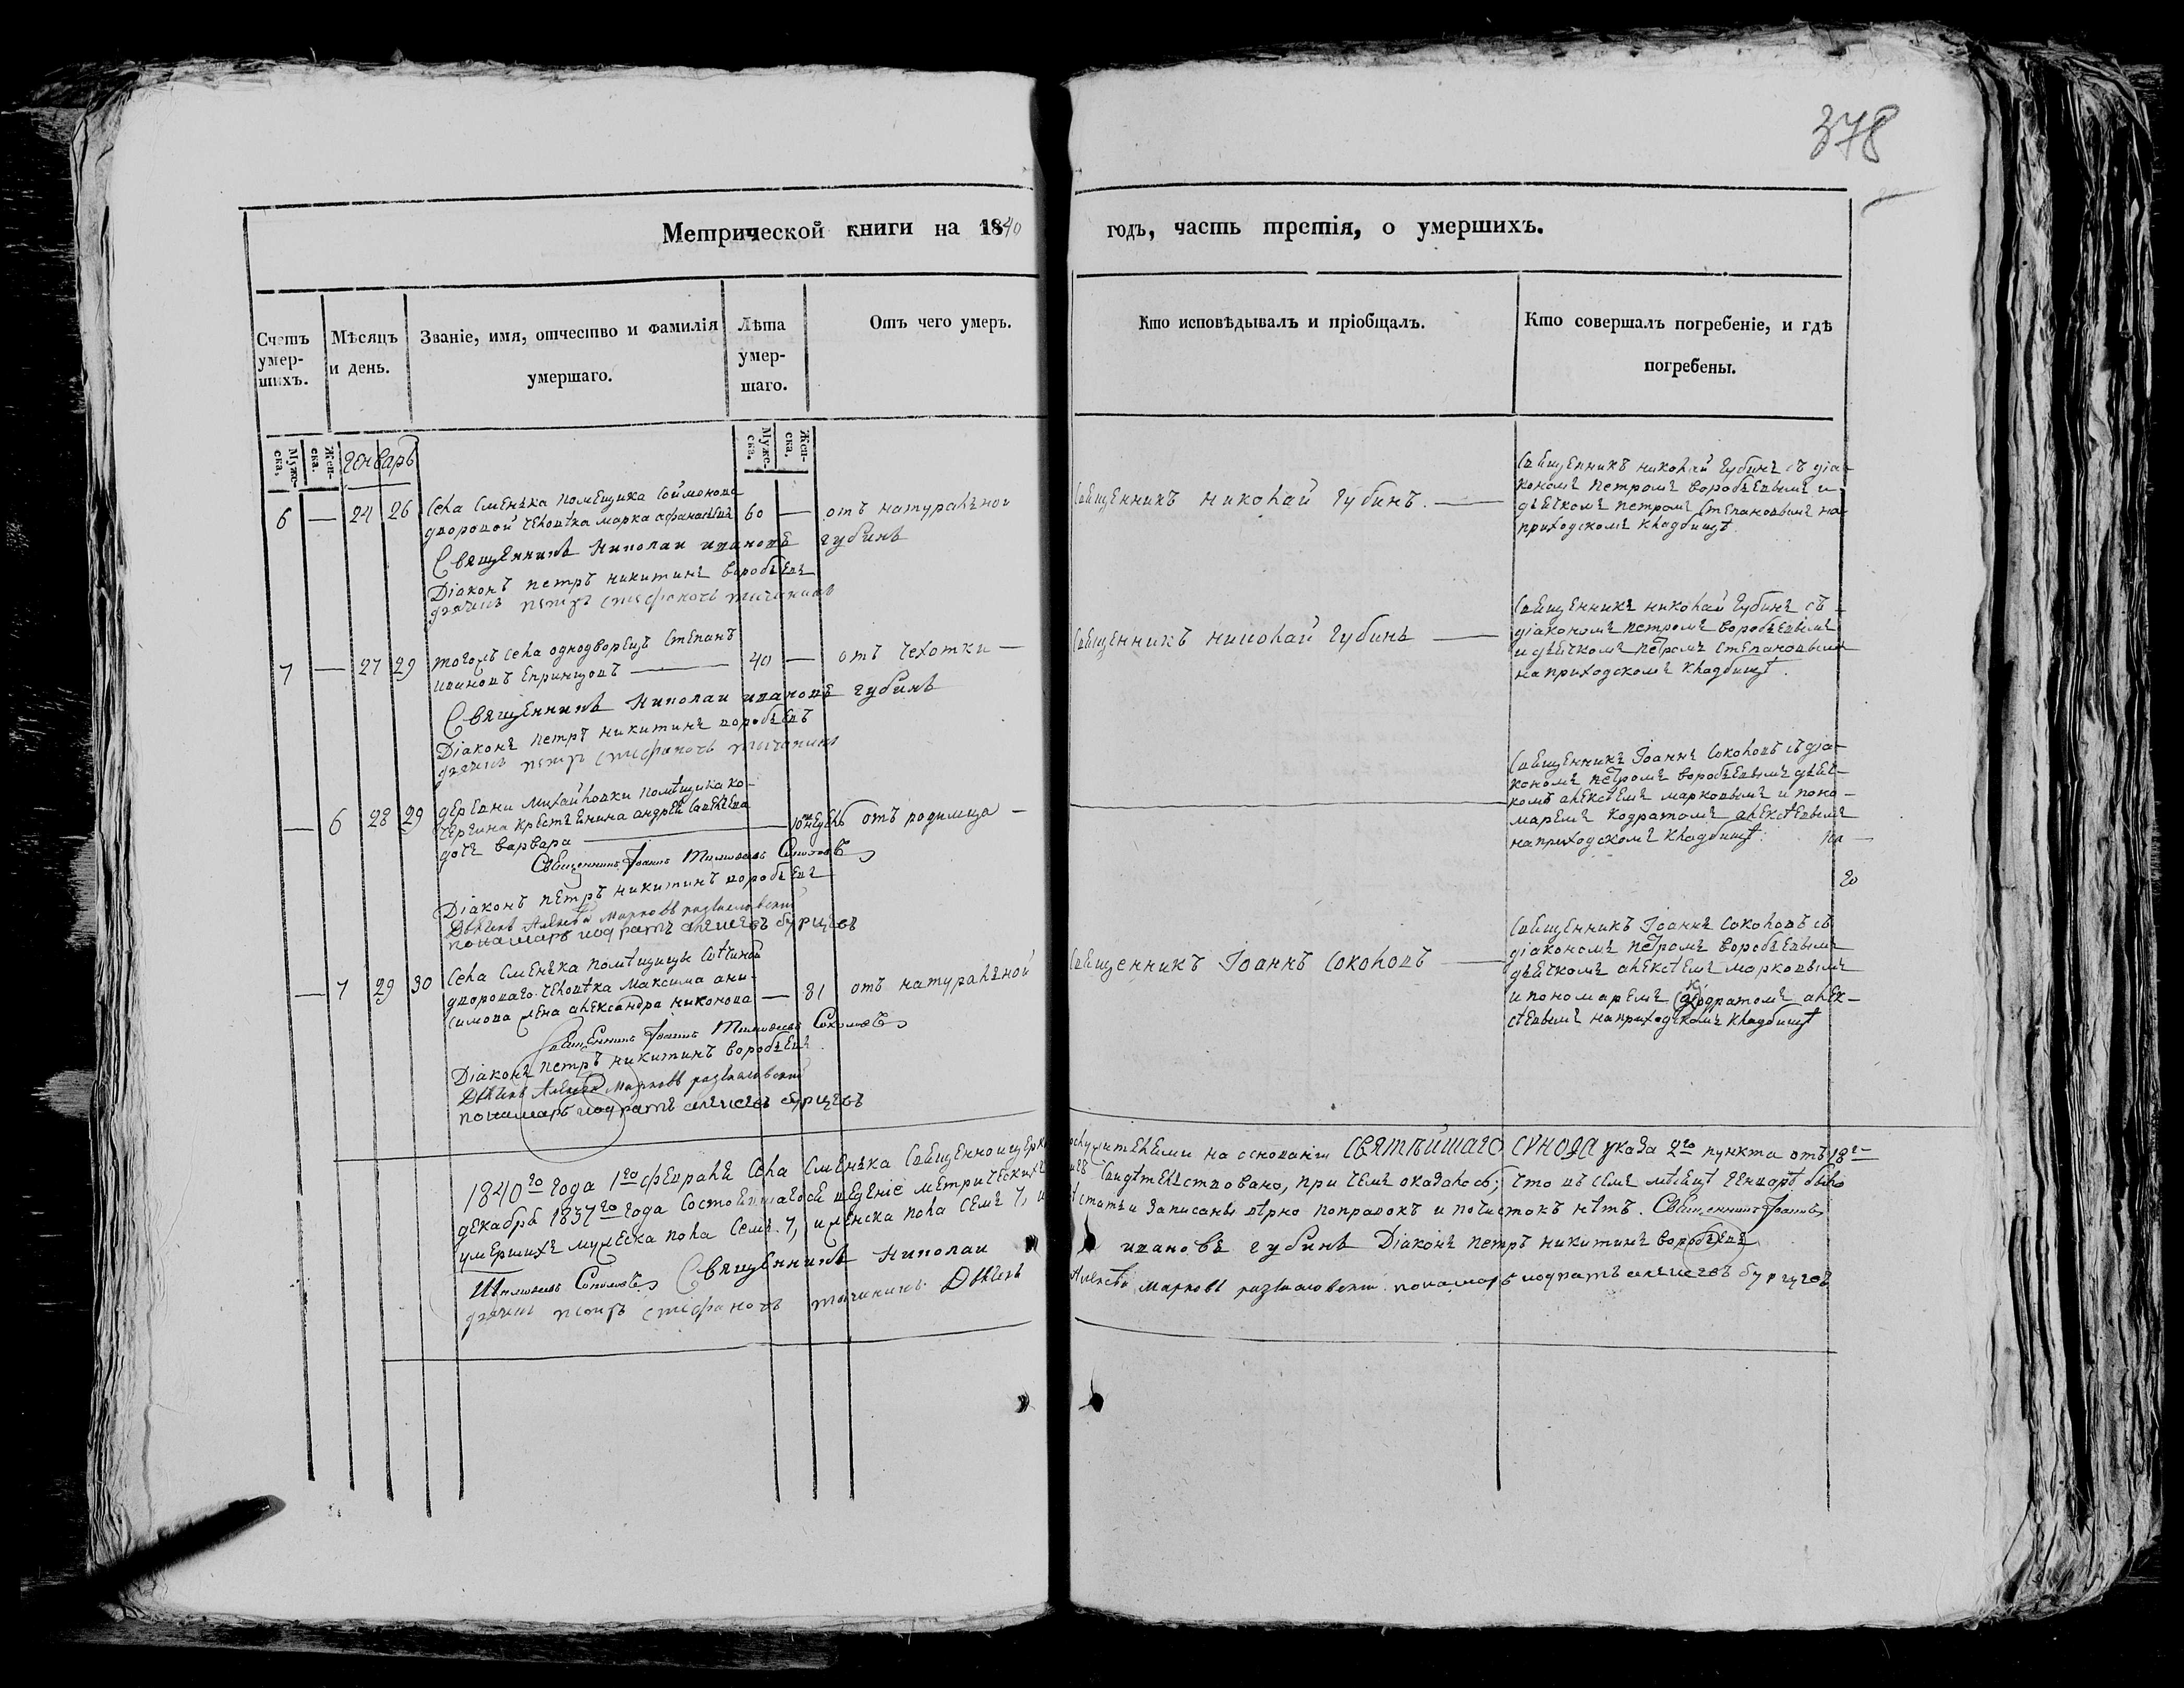 378
Метрической книги на 1840 годъ, часть третія, о умершихъ.
Счетъ умер-шихъ.
Мѣсяцъ и день.
Званіе, имя, отчество и фамилія умершаго.
Лѣта умер-шаго.
Отъ чего умеръ.
Кто исповѣдывалъ и пріобщалъ.
Кто совершалъ погребеніе, и гдѣ погребены.
Мужс-ска.
Жен-ска.
Генварь
Мужс-ска.
Жен-ска.
6 — 24 26
Села Сменька помещика Соймонова
дворовой человека марка афанасьевъ
60 —
отъ натуральной
Священникъ николай губинъ. —
Священникъ николай губинъ съ діа-
кономъ петромъ воробьевымъ и
дьячкомъ петромъ Степановымъ на
приходскомъ кладбищѣ
Священникъ Николаи ивановъ губинъ
Діаконъ петръ никитинъ воробьевъ
дьячикъ петръ стефановъ
7 — 27 29
тогожъ села однодворецъ Степанъ
ивановъ —
40 —
отъ чехотки —
Священникъ николай губинъ —
Священникъ николай губинъ съ
діакономъ петромъ воробьевымъ
и дьячкомъ петромъ степановымъ
на приходскомъ кладбищѣ.
Священникъ Николаи ивановъ губинъ
Діаконъ петръ никитинъ воробьевъ
дьячикъ петръ стефановъ
— 6 28 29
деревни Михайловки помѣщика ко-
крестьенина андрей савельева
дочь варвара —
10 недель
отъ родимца —
Священникъ Іоаннъ Соколовъ съ діа-
кономъ петромъ воробьевымъ дьяч-
комъ алексѣемъ марковымъ и поно-
маремъ кодратомъ алексѣевымъ
на приходскомъ кладбищѣ.
Священникъ Іоаннъ Соколовъ
Діаконъ петръ никитинъ воробьевъ
Дьячикъ Алексѣй Марковъ
понамарь кодратъ алексеевъ бурцовъ
го
— 7 29 30
Села Сменька помѣщицы
двороваго человѣка Максима ани-
симова жена александра никонова
— 81
отъ натуральной
Священникъ Іоаннъ Соколовъ —
Священникъ Іоаннъ Соколовъ съ
діакономъ петромъ воробьевымъ
дьячкомъ алексѣемъ марковымъ
и пономаремъ кодратомъ алек-
сѣевымъ на приходскомъ кладбищѣ
Священникъ Іоаннъ Соколовъ
Діаконъ петръ никитинъ воробьевъ
Дьячикъ Алексѣй Марковъ
понамарь кодратъ алексеевъ бурцовъ
1840го года 1го февраля Села Сменька Священноицерковнослужительми на основаніи СВЯТѢЙШАГО СУНОДА указа 2го пункта отъ 18го
декабря 1837го года состоевшагося веденіе метрическихъ книгъ свидѣтельствовано, при чемъ оказалось; что въ семъ мѣсецѣ генварѣ было
умершихъ мужеска пола семь. 7, и женска пола семь 7, и статьи записаны вѣрно поправокъ и почистокъ нѣтъ. Священникъ Іоаннъ
Соколовъ Священникъ Николаи ивановъ губинъ Діаконъ петръ никитинъ воробьевъ
дьячикъ петръ стефановъ Дьячикъ Алексѣй Марковъ понамарь кодратъ алексеевъ бурцовъ